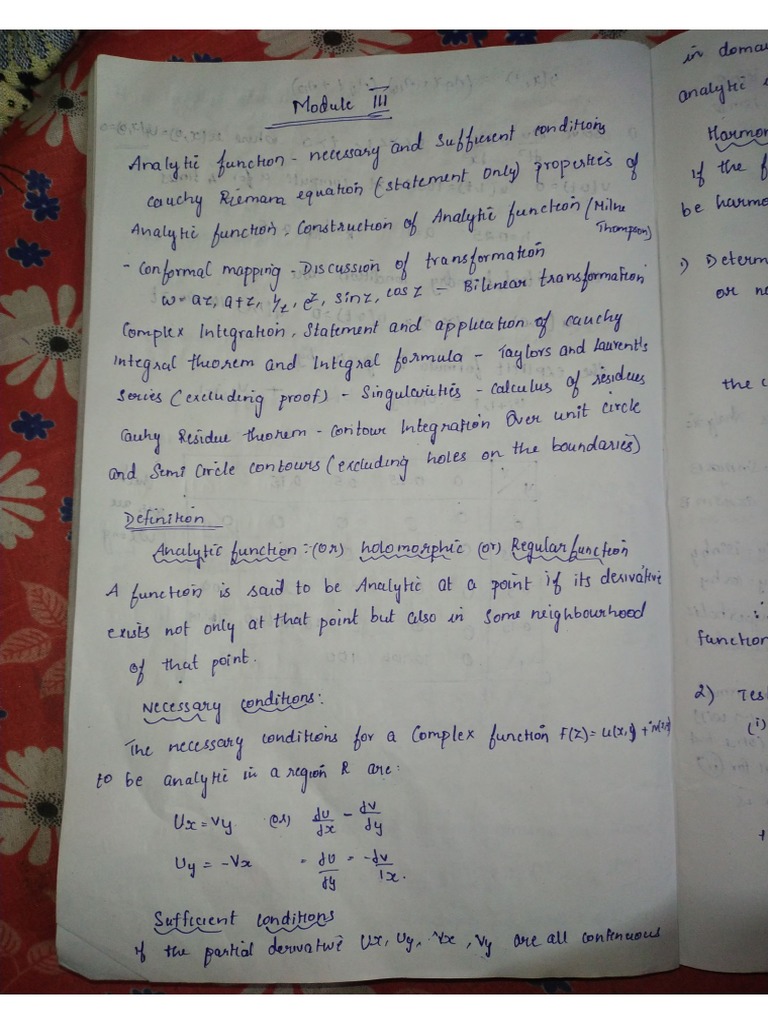 Module III
Analytic function - necessary and Sufficient conditions
cauchy Riemara equation (statement only) properties of
Analytic function - Construction of Analytic function (Milne
Thompson)
- Conformal mapping - Discussion of transformation
w = az, a+z, 1/z, e^z, sinz, cosz - Bilinear transformation
Complex Integration, Statement and application of cauchy
integral theorem and Integral formula - Taylors and Laurent's
series (excluding proof) - Singularities - calculus of residues
Cauhy Residue theorem - contour Integration Over unit circle
and Semi Circle contours (excluding holes on the boundaries)
Definition
Analytic function :- (or) holomorphic (or) Regular function
A function is said to be Analytic at a point if its derivative
exists not only at that point but also in some neighbourhood
of that point.
Necessary conditions:
The necessary conditions for a Complex function F(z) = u(x,y) + iv(x,y)
to be analytic in a region R are:
Ux = Vy (or) du/dx - dv/dy
Uy = -Vx = du/dy = -dv/dx.
Sufficient conditions
if the partial derivative Ux, Uy, Vx, Vy are all continuous
in domai
analytic
Harmon
if the f
be harmo
1) Determ
or no
the c
function
2) Test
(i)